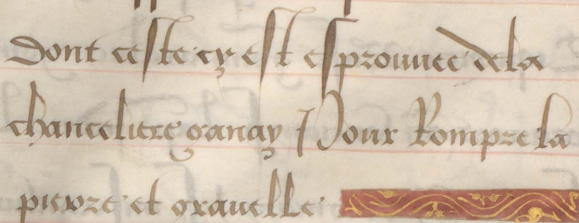 Dont ceste cy est esprouuee de la
chanceliere ganay Pour Rompre la
pierre et grauelle